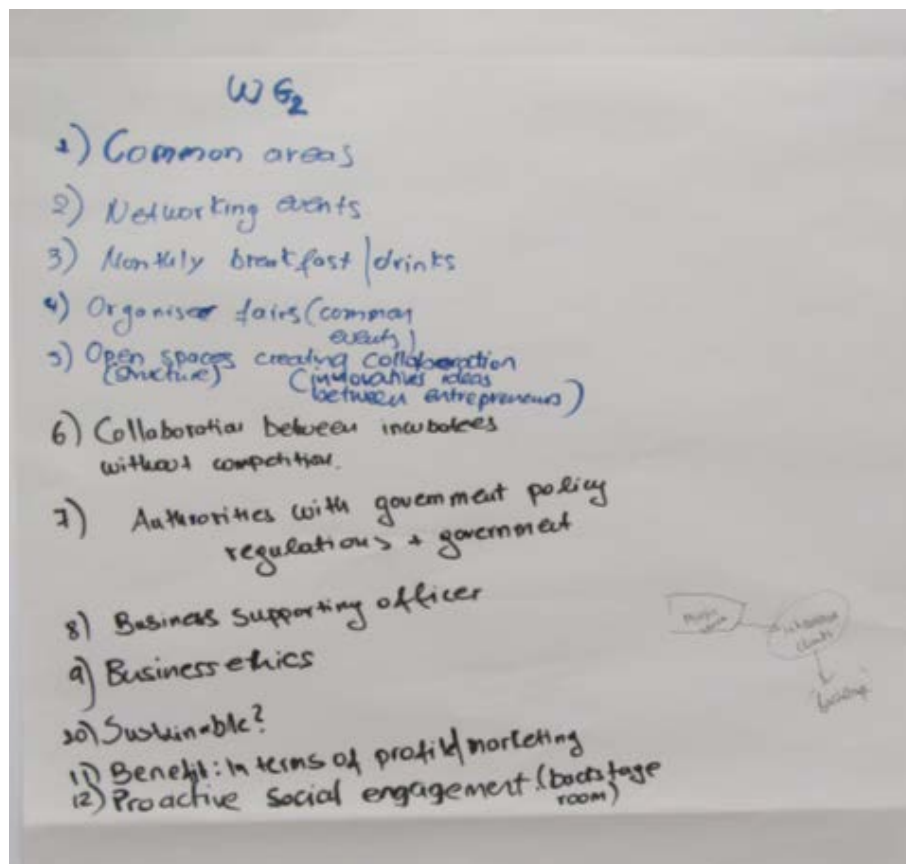 WG2
1) Common areas
2) Networking events
3) Monthly breakfast/drinks
4) Organise fairs (common
events)
5) Open spaces creating collaboration
(structure) (innovatives ideas
between entrepreneurs)
6) Collaboration between incubatees
without competition.
7) Authrorities with government policy
regulations + government
8) Business supporting officer
9) Business ethics
10) Sustainable?
11) Benefit: in terms of profile/marketing
12) Proactive social engagement (backstage
room)